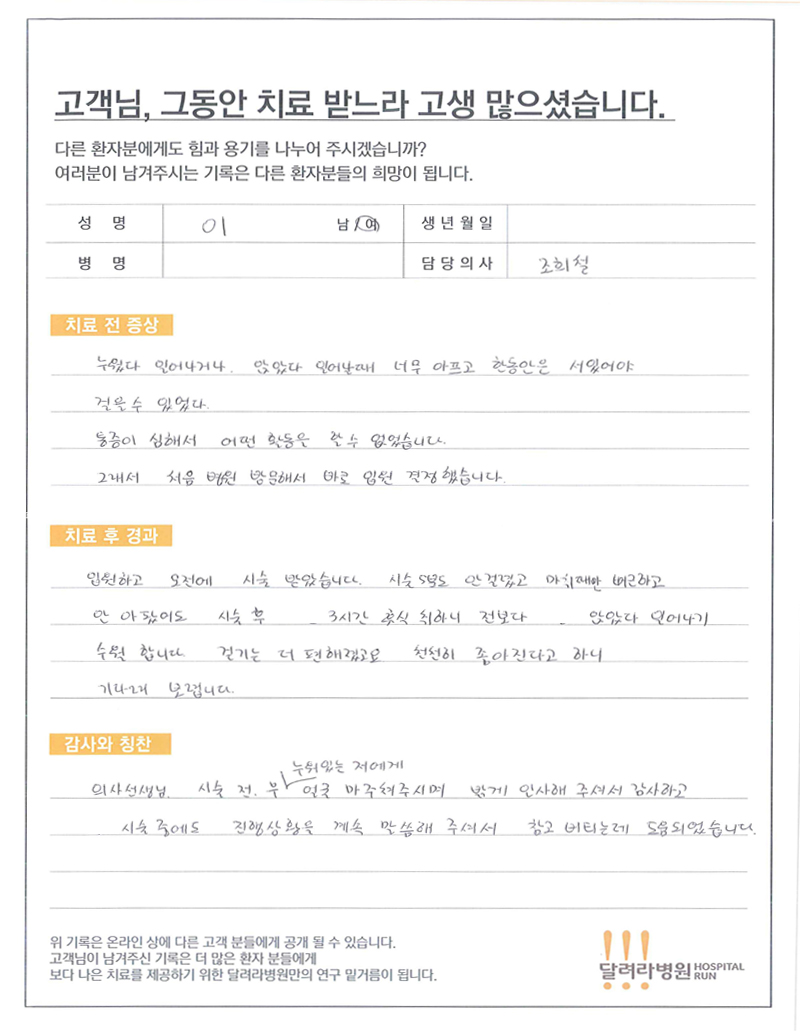 고객님, 그동안 치료 받느라 고생 많으셨습니다.
다른 환자분에게도 힘과 용기를 나누어 주시겠습니까?
여러분이 남겨주시는 기록은 다른 환자분들의 희망이 됩니다.
성 명 이 남/여 생년월일
병 명 담당의사 조희철
치료 전 증상
누웠다 일어나거나. 앉았다 일어날때 너무 아프고 한동안은 서있어야
걸을수 있었다.
통증이 심해서 어떤 활동은 할수 없었습니다.
그래서 처음 병원 방문해서 바로 입원 결정했습니다.
치료 후 경과
입원하고 오전에 시술 받았습니다. 시술 5분도 안걸렸고 마취때만 뻐근하고
안 아팠어도 시술 후 3시간 휴식 취하니 전보다 앉았다 일어나기
수월 합니다. 걷기는 더 편해졌고요 천천히 좋아진다고 하니
기다려 보렵니다.
감사와 칭찬
누워있는 저에게
의사선생님. 시술 전. 후 얼굴 마주쳐주시며 밝게 인사해 주셔서 감사하고
시술 중에도 진행상황을 계속 말씀해 주셔서 참고 버티는데 도움되었습니다.
위 기록은 온라인 상에 다른 고객 분들에게 공개 될 수 있습니다.
고객님이 남겨주신 기록은 더 많은 환자 분들에게
보다 나은 치료를 제공하기 위한 달려라병원만의 연구 밑거름이 됩니다.
달려라병원 HOSPITAL RUN